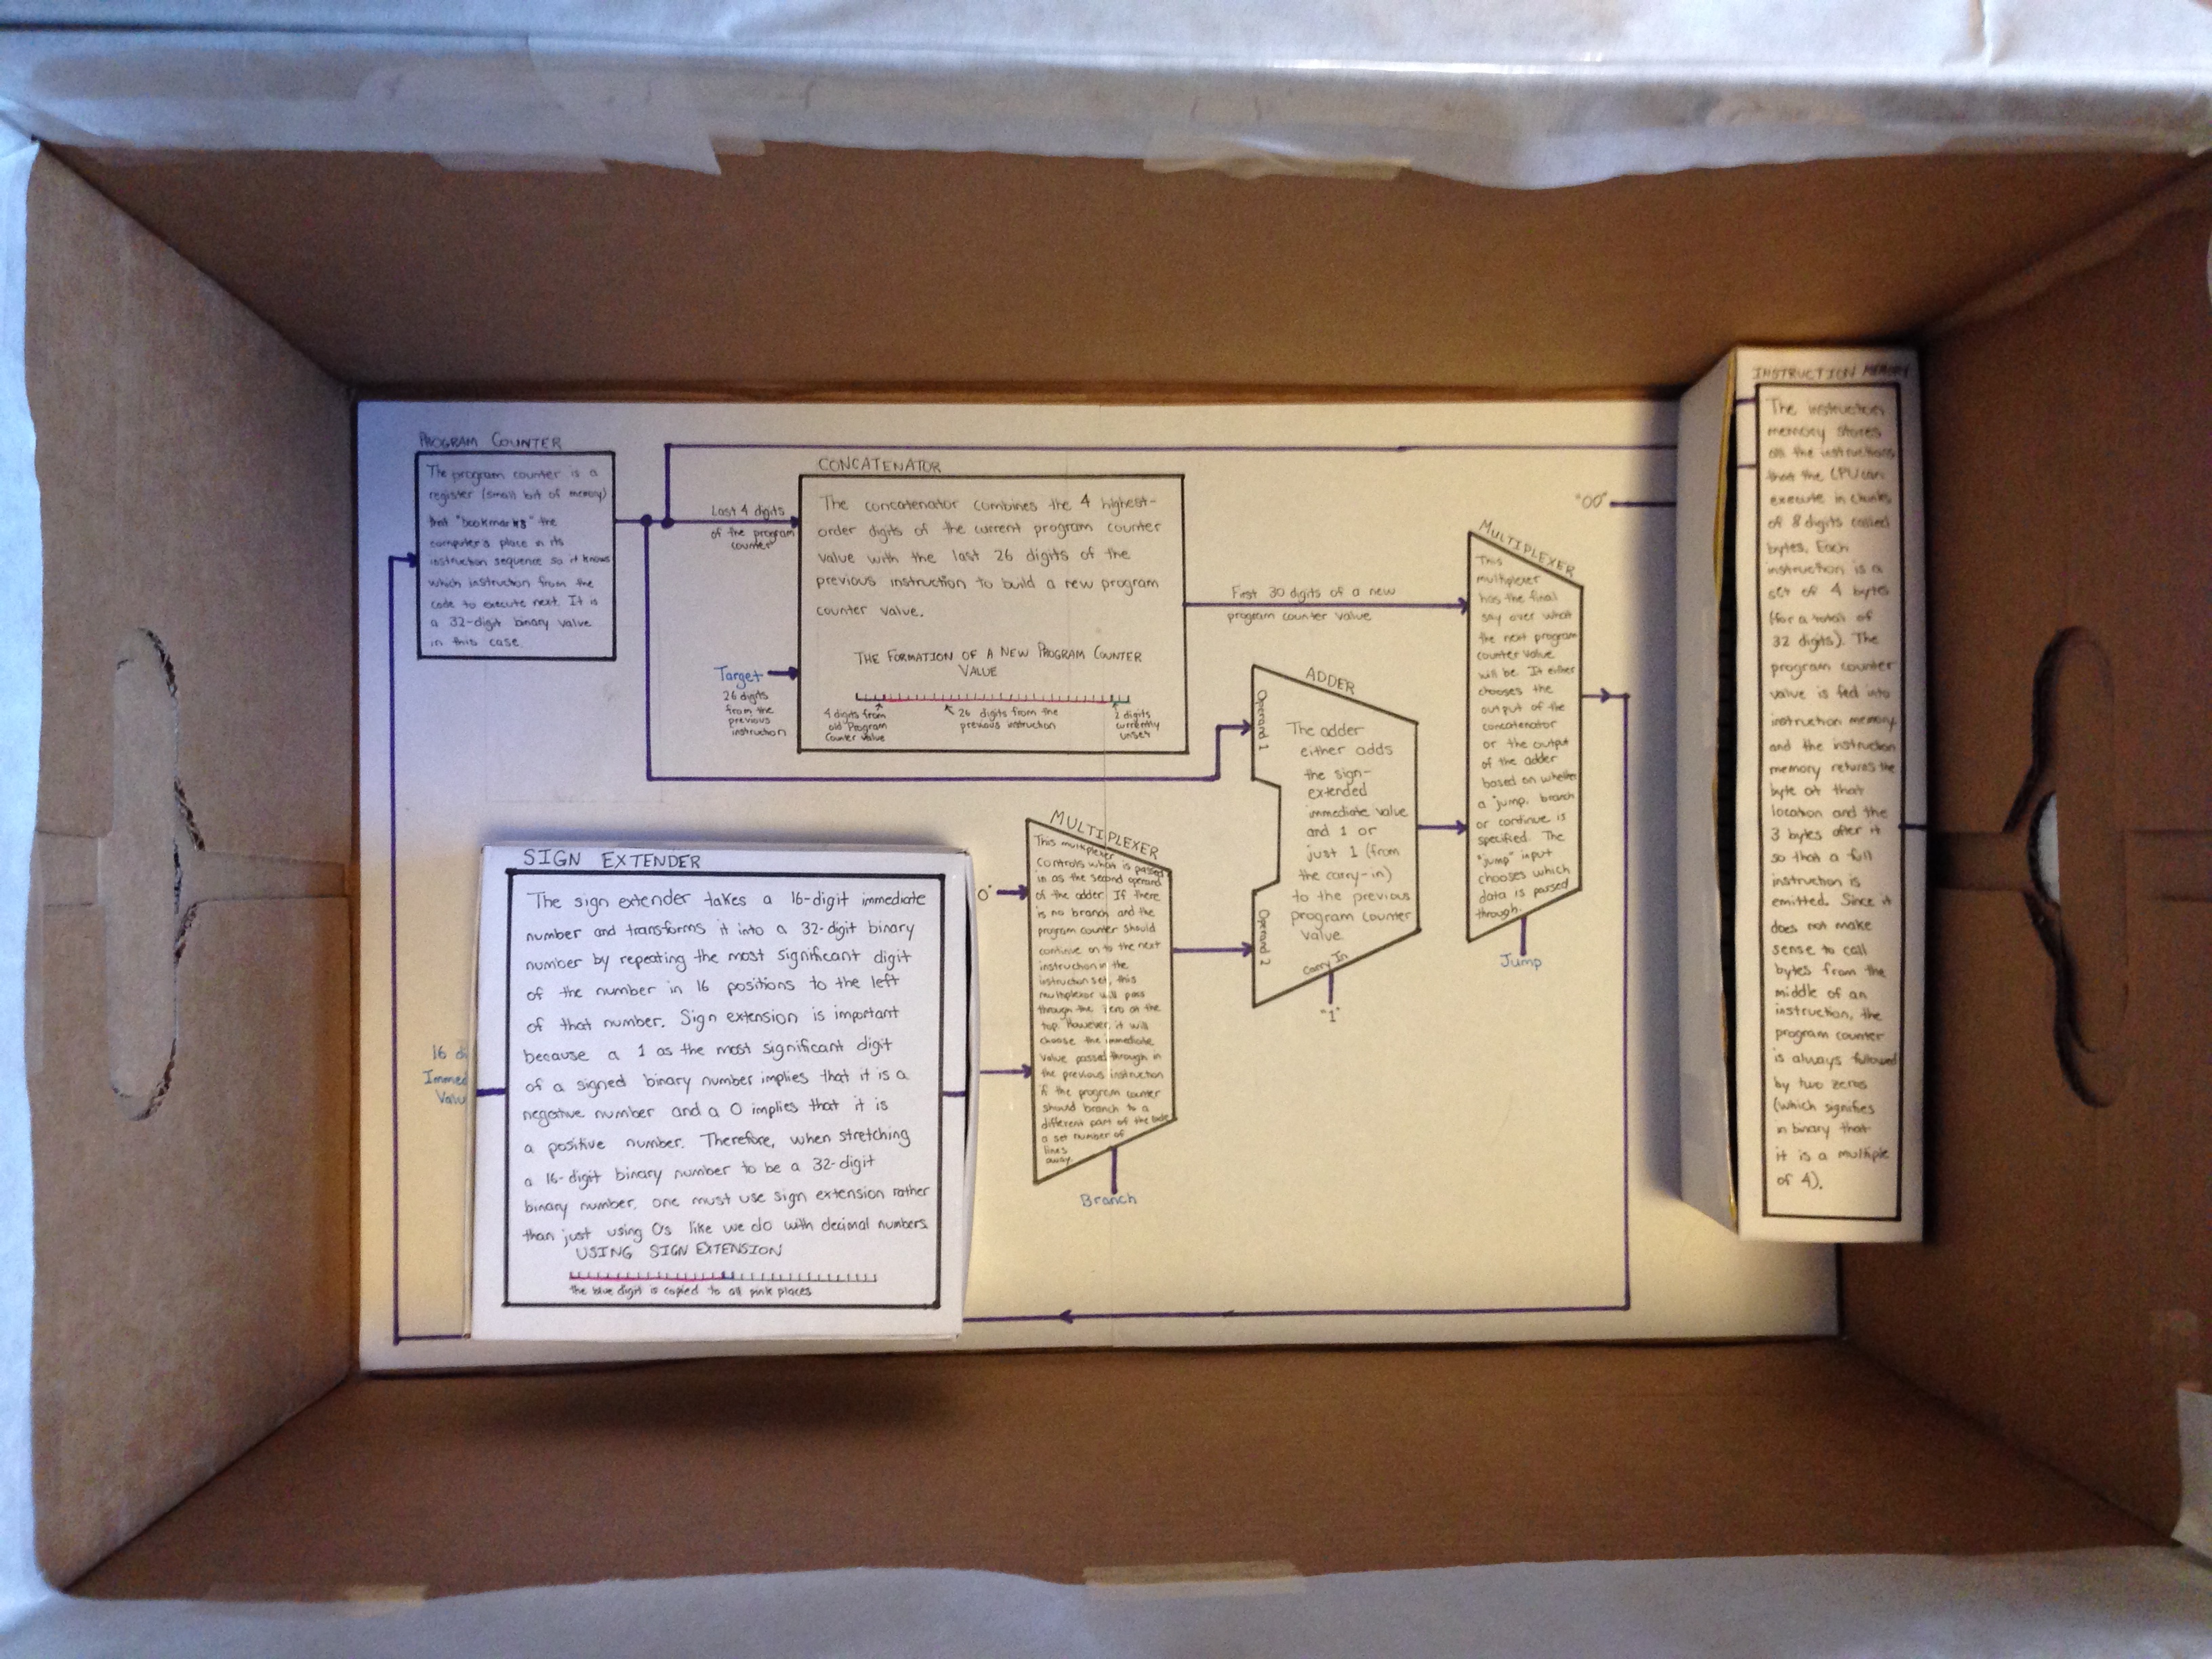 PROGRAM COUNTER
The program counter is a
register (small bit of memory)
that "bookmarks" the
computer's place in its
instruction sequence so it knows
which instruction from the
code to execute next. It is
a 32-digit binary value
in this case.
Last 4 digits
of the program
counter
Target
26 digits
from the
previous
instruction
CONCATENATOR
The concatenator combines the 4 highest-
order digits of the current program counter
value with the last 26 digits of the
previous instruction to build a new program
counter value.
THE FORMATION OF A NEW PROGRAM COUNTER
VALUE
4 digits from
old Program
Counter Value
26 digits from the
previous instruction
2 digits
currently
unset
First 30 digits of a new
program counter value
MULTIPLEXER
This
multiplexer
has the final
say over what
the next program
counter value
will be. It either
chooses the
output of the
concatenator
or the output
of the adder
based on whether
a jump, branch
or continue is
specified. The
"jump" input
chooses which
data is passed
through.
Jump
ADDER
Operand 1
Operand 2
The adder
either adds
the sign-
extended
immediate value
and 1 or
just 1 (from
the carry-in)
to the previous
program counter
value.
Carry In
"1"
MULTIPLEXER
This multiplexer
controls what is passed
in as the second operand
of the adder. If there
is no branch and the
program counter should
continue on to the next
instruction in the
instruction set, this
multiplexor will pass
through the zero at the
top. However, it will
choose the immediate
value passed through in
the previous instruction
if the program counter
should branch to a
different part of the code
a set number of
lines
away.
Branch
0"
16 di
Immed
Valu
SIGN EXTENDER
The sign extender takes a 16-digit immediate
number and transforms it into a 32-digit binary
number by repeating the most significant digit
of the number in 16 positions to the left
of that number. Sign extension is important
because a 1 as the most significant digit
of a signed binary number implies that it is a
negative number and a 0 implies that it is
a positive number. Therefore, when stretching
a 16-digit binary number to be a 32-digit
binary number, one must use sign extension rather
than just using 0s like we do with decimal numbers.
USING SIGN EXTENSION
the blue digit is copied to all pink places
"00"
INSTRUCTION MEMORY
The instruction
memory stores
all the instructions
that the CPU can
execute in chunks
of 8 digits called
bytes. Each
instruction is a
set of 4 bytes
(for a total of
32 digits). The
program counter
value is fed into
instruction memory
and the instruction
memory returns the
byte at that
location and the
3 bytes after it
so that a full
instruction is
emitted. Since it
does not make
sense to call
bytes from the
middle of an
instruction, the
program counter
is always followed
by two zeros
(which signifies
in binary that
it is a multiple
of 4).